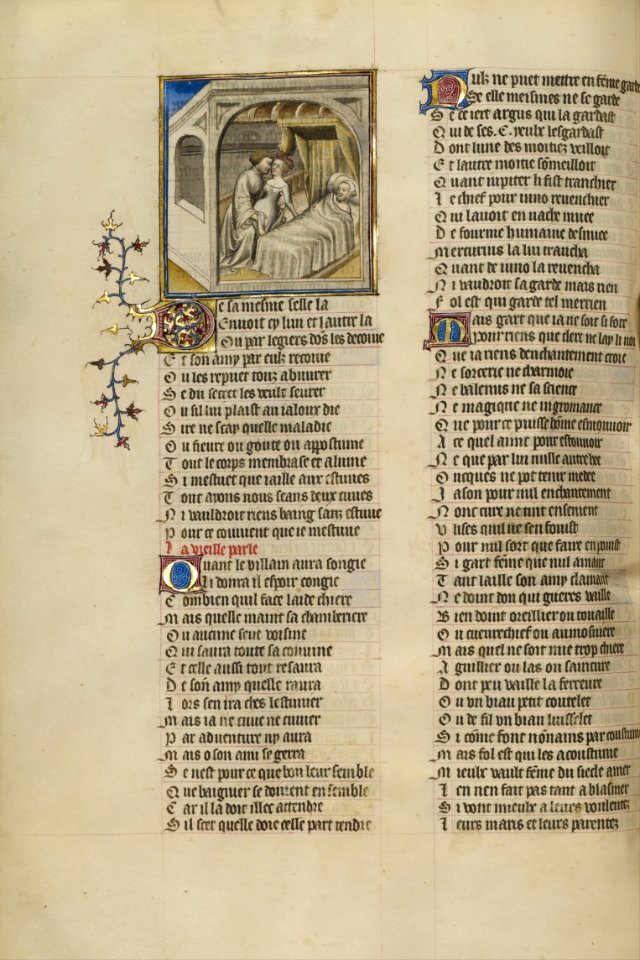 De sa mesme selle la
Envoit cy lun et lautre la
Ou par legiers dos les decoiue
Et son amy par eulx recoiue
Ou les repuet touz abuurer
Se du secret les veult seurer
Ou sil lui plaist au ialoux die
Sire ne scay quelle maladie
Ou fieure ou goute ou appostume
Tout le corps membrase et alume
Si mestuet que iaille aux estuues
Tout ayons nous seans deux cuues
Ni vauldroit riens baing sanz estuue
Pour ce couuent que ie mestuue
La vieille parle
Quant le villain aura songie
Li donra il espoir congie
Combien quil face laide chiere
Mais quelle maint sa chamberiere
Ou aucune seue voisine
Qui saura toute sa couuine
Et celle aussi tout resaura
De son amy quelle raura
Lors sen ira ches lestuuier
Mais ia ne cuue ne cuuier
Par aduenture ny aura
Mais o son ami se gerra
Se nest pour ce que bon leur semble
Que baignier se doiuent ensemble
Car il la doit illec attendre
Sil scet quelle doie celle part tendre
Nulz ne puet mettre en feme garde
Se elle meismes ne se garde
Se ce iert argus qui la gardast
Qui de ses .C. yeulx lesgardast
Dont lune des moitiez veilloit
Et lautre moitie someilloit
Quant iupiter li fist tranchier
Le chief pour iuno reuenchier
Qui lauoit en vache muee
De fourme humaine desnuee
Mercurius la lui trancha
Quant de iuno la reuencha
Ni vaudroit sa garde mais rien
Fol est qui garde tel merrien
Mais gart que ia ne soit si sote
Pour riens que clerc ne lay li note
Que ia riens denchantement croie
Ne sorcerie ne charmoie
Ne balenus ne sa science
Ne magique ne nigromance
Que pour ce puisse home esmouuoir
A ce quel aint pour estouuoir
Ne que par lui nulle autre hee
Oncques ne pot tenir medee
Iason pour nul enchantement
Nonc circe ne tint ensement
Ulises quil ne sen fouist
Pour nul sort que faire en pouist
Si gart feme que nul amant
Tant laille son amy clamant
Ne doint don qui gueres vaille
Bien doint oreillier ou touaille
Ou cueurechief ou aumosniere
Mais quel ne soit mie trop chiere
Aguillier ou las ou sainture
Dont peu vaille la ferreure
Ou vn biau petit coutelet
Ou de fil vn biau luisselet
Si come font nonains par coustume
Mais fol est qui les acoustume
Mieulx vault feme du siecle amer
Len nen fait pas tant a blasmer
Si vont mieulx a leurs voulentez
Leurs maris et leurs parentez